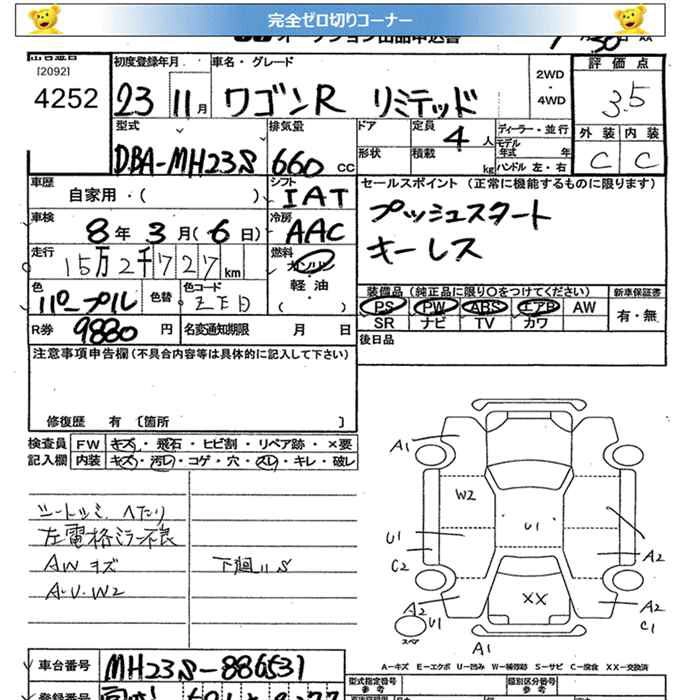 完全ゼロ切りコーナー
[2092]
4252
初度登録年月
23 11月
車名・グレード
ワゴンR リミテッド
2WD
・
4WD
評価点
3.5
外装 内装
C C
型式
DBA-MH23S
排気量
660 CC
ドア
形状
定員
4 人
積載
kg
ディーラー・並行
モデル年式 年
ハンドル 左・右
車歴
自家用・( )
シフト
IAT
セールスポイント (正常に機能するものに限ります)
プッシュスタート
キーレス
車検
8年3月(6日)
冷房
AAC
走行
15万2千727km
燃料
ガソリン
軽油
( )
色
パープル
色替
色コード
ZED
R券
9880円
名変通知期限 月 日
装備品(純正品に限り〇をつけてください)
PS PW ABS エアB AW
SR ナビ TV カワ
新車保証書
有・無
後日品
注意事項申告欄(不具合内容等は具体的に記入して下さい)
修復歴 有 [箇所 ]
検査員
記入欄
FW キズ・飛石・ヒビ割・リペア跡・×要
内装 キズ・汚レ・コゲ・穴・スレ・キレ・破レ
シートシミ、ヘたり
左電格ミラー不良
AWキズ
A・U・W2
下廻りS
A1
W2
U1
U1
C2
A2
A2
U1
XX
A2
C1
A1
スペア
A-キズ E-エクボ U-凹み W-補修跡 S-サビ C-腐食 XX-交換済
車台番号
MH23S-886531
型式指定番号
参考
類別区分番号
参考
登録番号